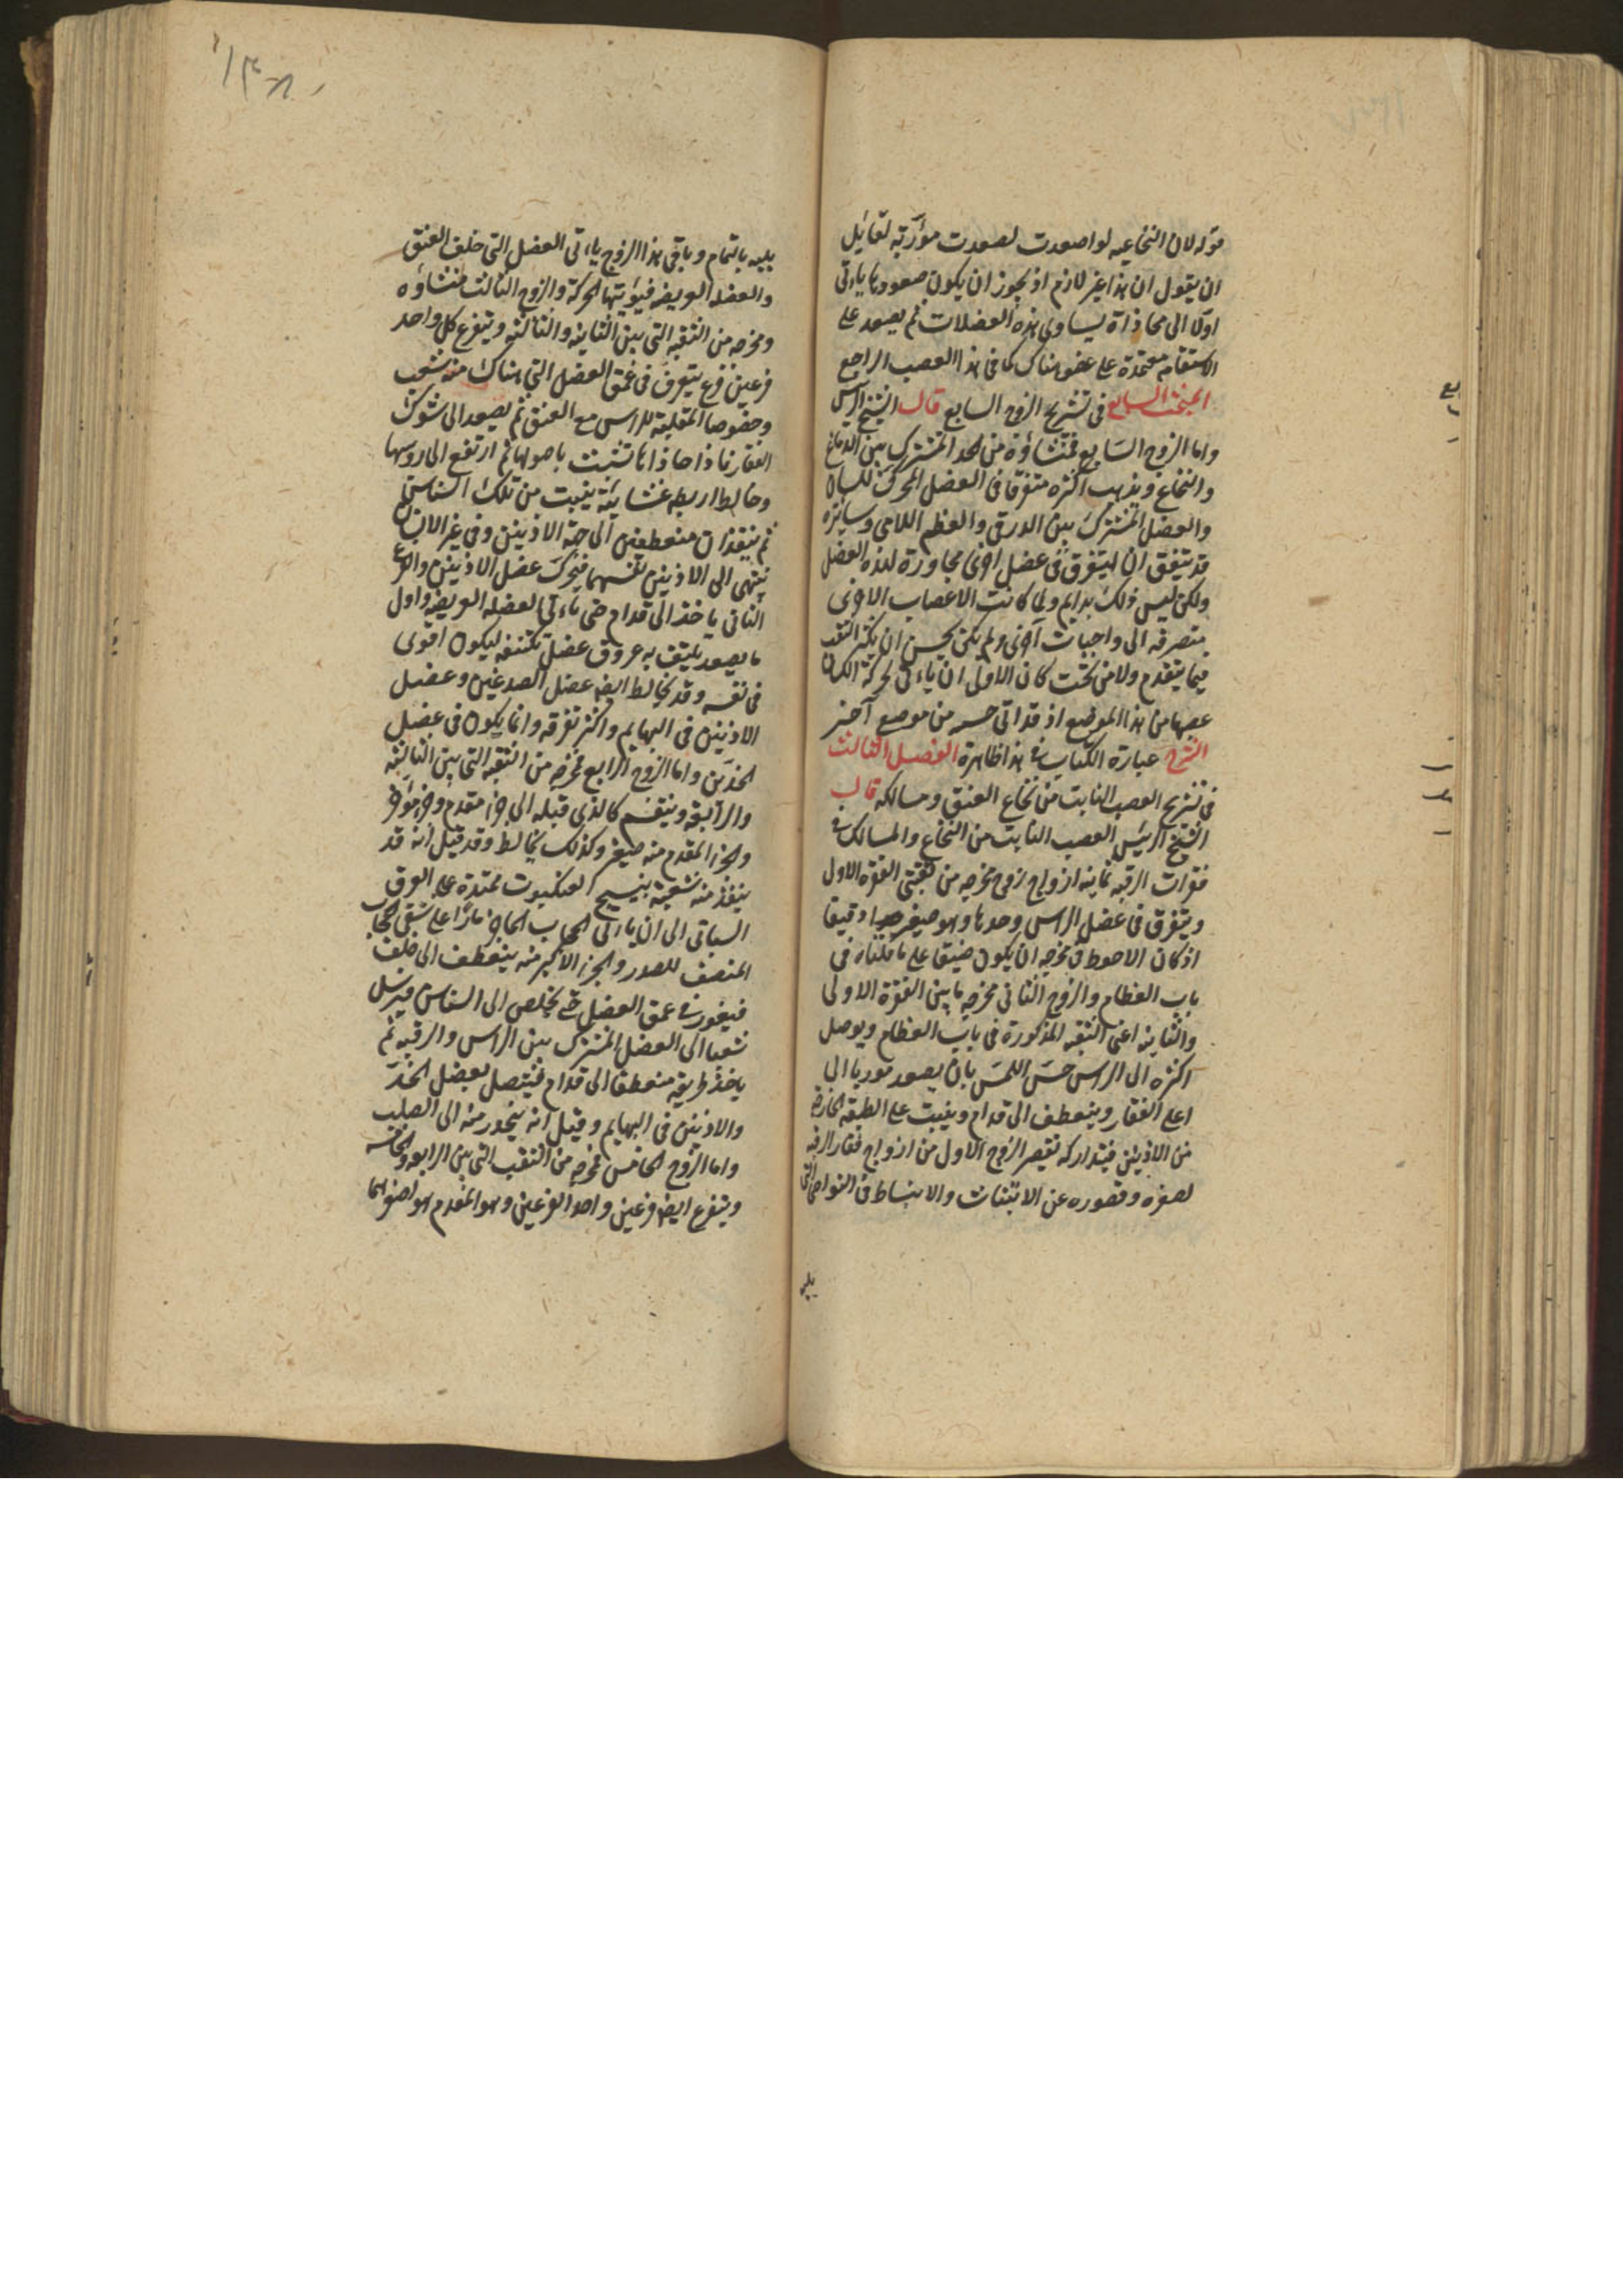 قوله لان النخاعيه لو اصعدت لصعدت موربة لقائل
ان يقول ان هذا غير لازم اذ يجوز ان يكون صعودها ياتى
اولا الى محاذاة يساوى هذه العضلات ثم يصعد على
الاستقامه معتمدة على عضو هناك كما فى هذا العصب الراجع
المبحث السابع فى تشريح الزوج السابع قال الشيخ الرئيس
واما الزوج السابع فمنشاؤه من الحد المشترك بين الدماغ
والنخاع ويذهب اكثره متفرقا فى العضل المحركة للسان
والعضل المشترك بين الدرقى والعظم اللامى وسائره
قد يتفق ان يتفرق فى عضل اخرى مجاورة لهذه العضل
ولكن ليس ذلك بدايم ولما كانت الاعصاب الاخرى
منصرفه الى واجبات اخرى ولم يكن يحسن ان يكثر الثقب
فيما يتقدم ولا من تحت كان الاولى ان ياتى حركة اللسان
عصبها من هذا الموضع اذ قد اتى حسه من موضع آخر
الشرح عبارة الكتاب فى هذا ظاهرة الفصل الثالث
فى تشريح العصب النابت من نخاع العنق ومسالكه قال
الشيخ الرئيس العصب النابت من النخاع والمسالك فى
فقرات الرقبه ثمانيه ازواج زوج مخرجه من ثقبتى الفقره الاولى
ويتفرق فى عضل الراس وحدها وهو صغير جدا دقيقا
اذ كان الاحوط فى مخرجه ان يكون ضيقا على ما قلناه فى
باب العظام والزوج الثانى مخرجه ما بين الفقرة الاولى
والثانيه اعنى الثقبه المذكورة فى باب العظام ويوصل
اكثره الى الراس حس اللمس بان يصعد موربا الى
اعلى الفقار وينعطف الى قدام وينبت على الطبقه الخارجه
من الاذنين فيتدارك تقصير الزوج الاول من ازواج فقار الرقبه
لصغره وقصوره عن الانبثاث والانبساط فى النواحى التى
يليه
يليه بالتمام وباقى هذا الزوج ياتى العضل التى خلف العنق
والعضله العريضه فيؤتيها الحركة والزوج الثالث منشاؤه
ومخرجه من الثقبه التى بين الثانيه والثالثه ويتفرع كل واحد
فرعين فرع يتفرق فى عمق العضل التى هناك منه شعب
وخصوصا المقلبة للراس مع العنق ثم يصعد الى شوك
الفقار فاذا حاذاها تشبث باصولها ثم ارتفع الى روسها
وخالط اربطه غشائية ينبت من تلك السناسن
ثم ينفذان منعطفين الى جهة الاذنين وفى غير الانسان
ينتهى الى الاذنين نفسهما فيحرك عضل الاذنين والفرع
الثانى ياخذ الى قدام حتى ياتى العضله العريضه واول
ما يصعد يلتف به عروق وعضل تكتنفه ليكون اقوى
فى نفسه وقد يخالط ايضا عضل الصدغين وعضل
الاذنين فى البهايم واكثر تفرقه وانما يكون فى عضل
الخدين واما الزوج الرابع فمخرجه من الثقبه التى بين الثالثه
والرابعه وينقسم كالذى قبله الى جزء مقدم وجزء مؤخر
والجزء المقدم منه صغير وكذلك يخالط وقد قيل انه قد
ينفذ منه شعبة كنسيج العنكبوت ممتدة على العرق
السباتى الى ان ياتى الحجاب الحاجز مارا على شقى الحجاب
المنصف للصدر والجزء الاكبر منه ينعطف الى خلف
فيغور فى عمق العضل حتى يخلص الى السناسن فيرسل
شعبا الى العضل المشترك بين الراس والرقبه ثم
ياخذ طريقه منعطفا الى قدام فيتصل بعضل الخد
والاذنين فى البهايم وقيل انه ينحدر منه الى الصلب
واما الزوج الخامس مخرجه من الثقب التى بين الرابعه والخامسه
ويتفرع ايضا فرعين واحد الفرعين وهو المقدم هو اصغرهما